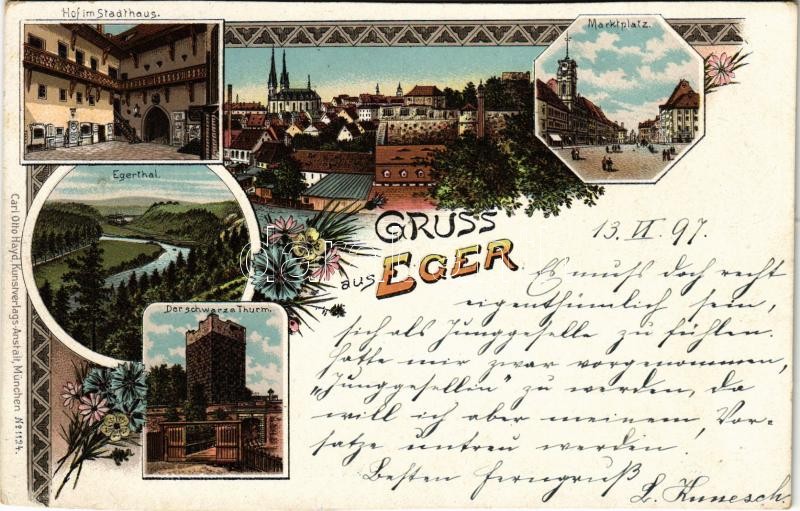 Hof im Stadthaus.
Marktplatz.
Egerthal.
GRUSS
aus EGER
Der schwarze Thurm.
Carl Otto Hayd, Kunstverlags-Anstalt, München No 1124.
13. VI. 97.
Es muß doch recht
eigenthümlich sein,
sich als Junggeselle zu fühlen.
Hatte mir zwar vorgenommen,
„Junggesellin" zu werden, da
will ich aber meinem Vor-
satze untreu werden.
Besten Ferngruß
L. Kunesch.